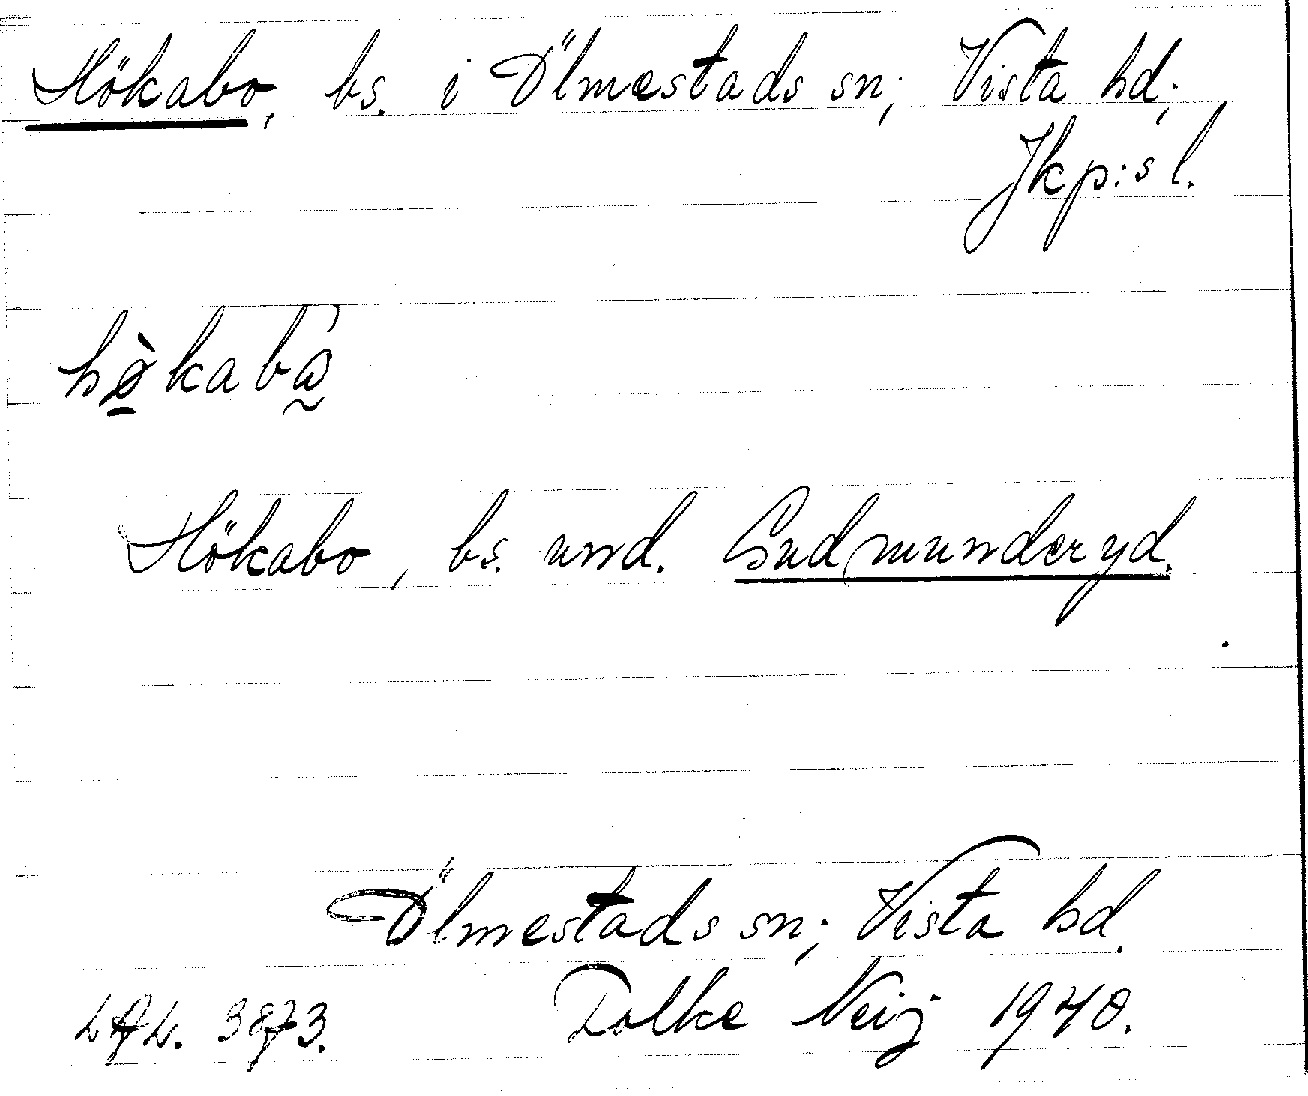 Hökabo, bs. i Ölmestads sn; Vista hd;
Jkp:s l.
hø̀kabå
Hökabo, bs. und. Gudmunderyd.
Ölmestads sn; Vista hd.
Folke Neij 1940.
3873.